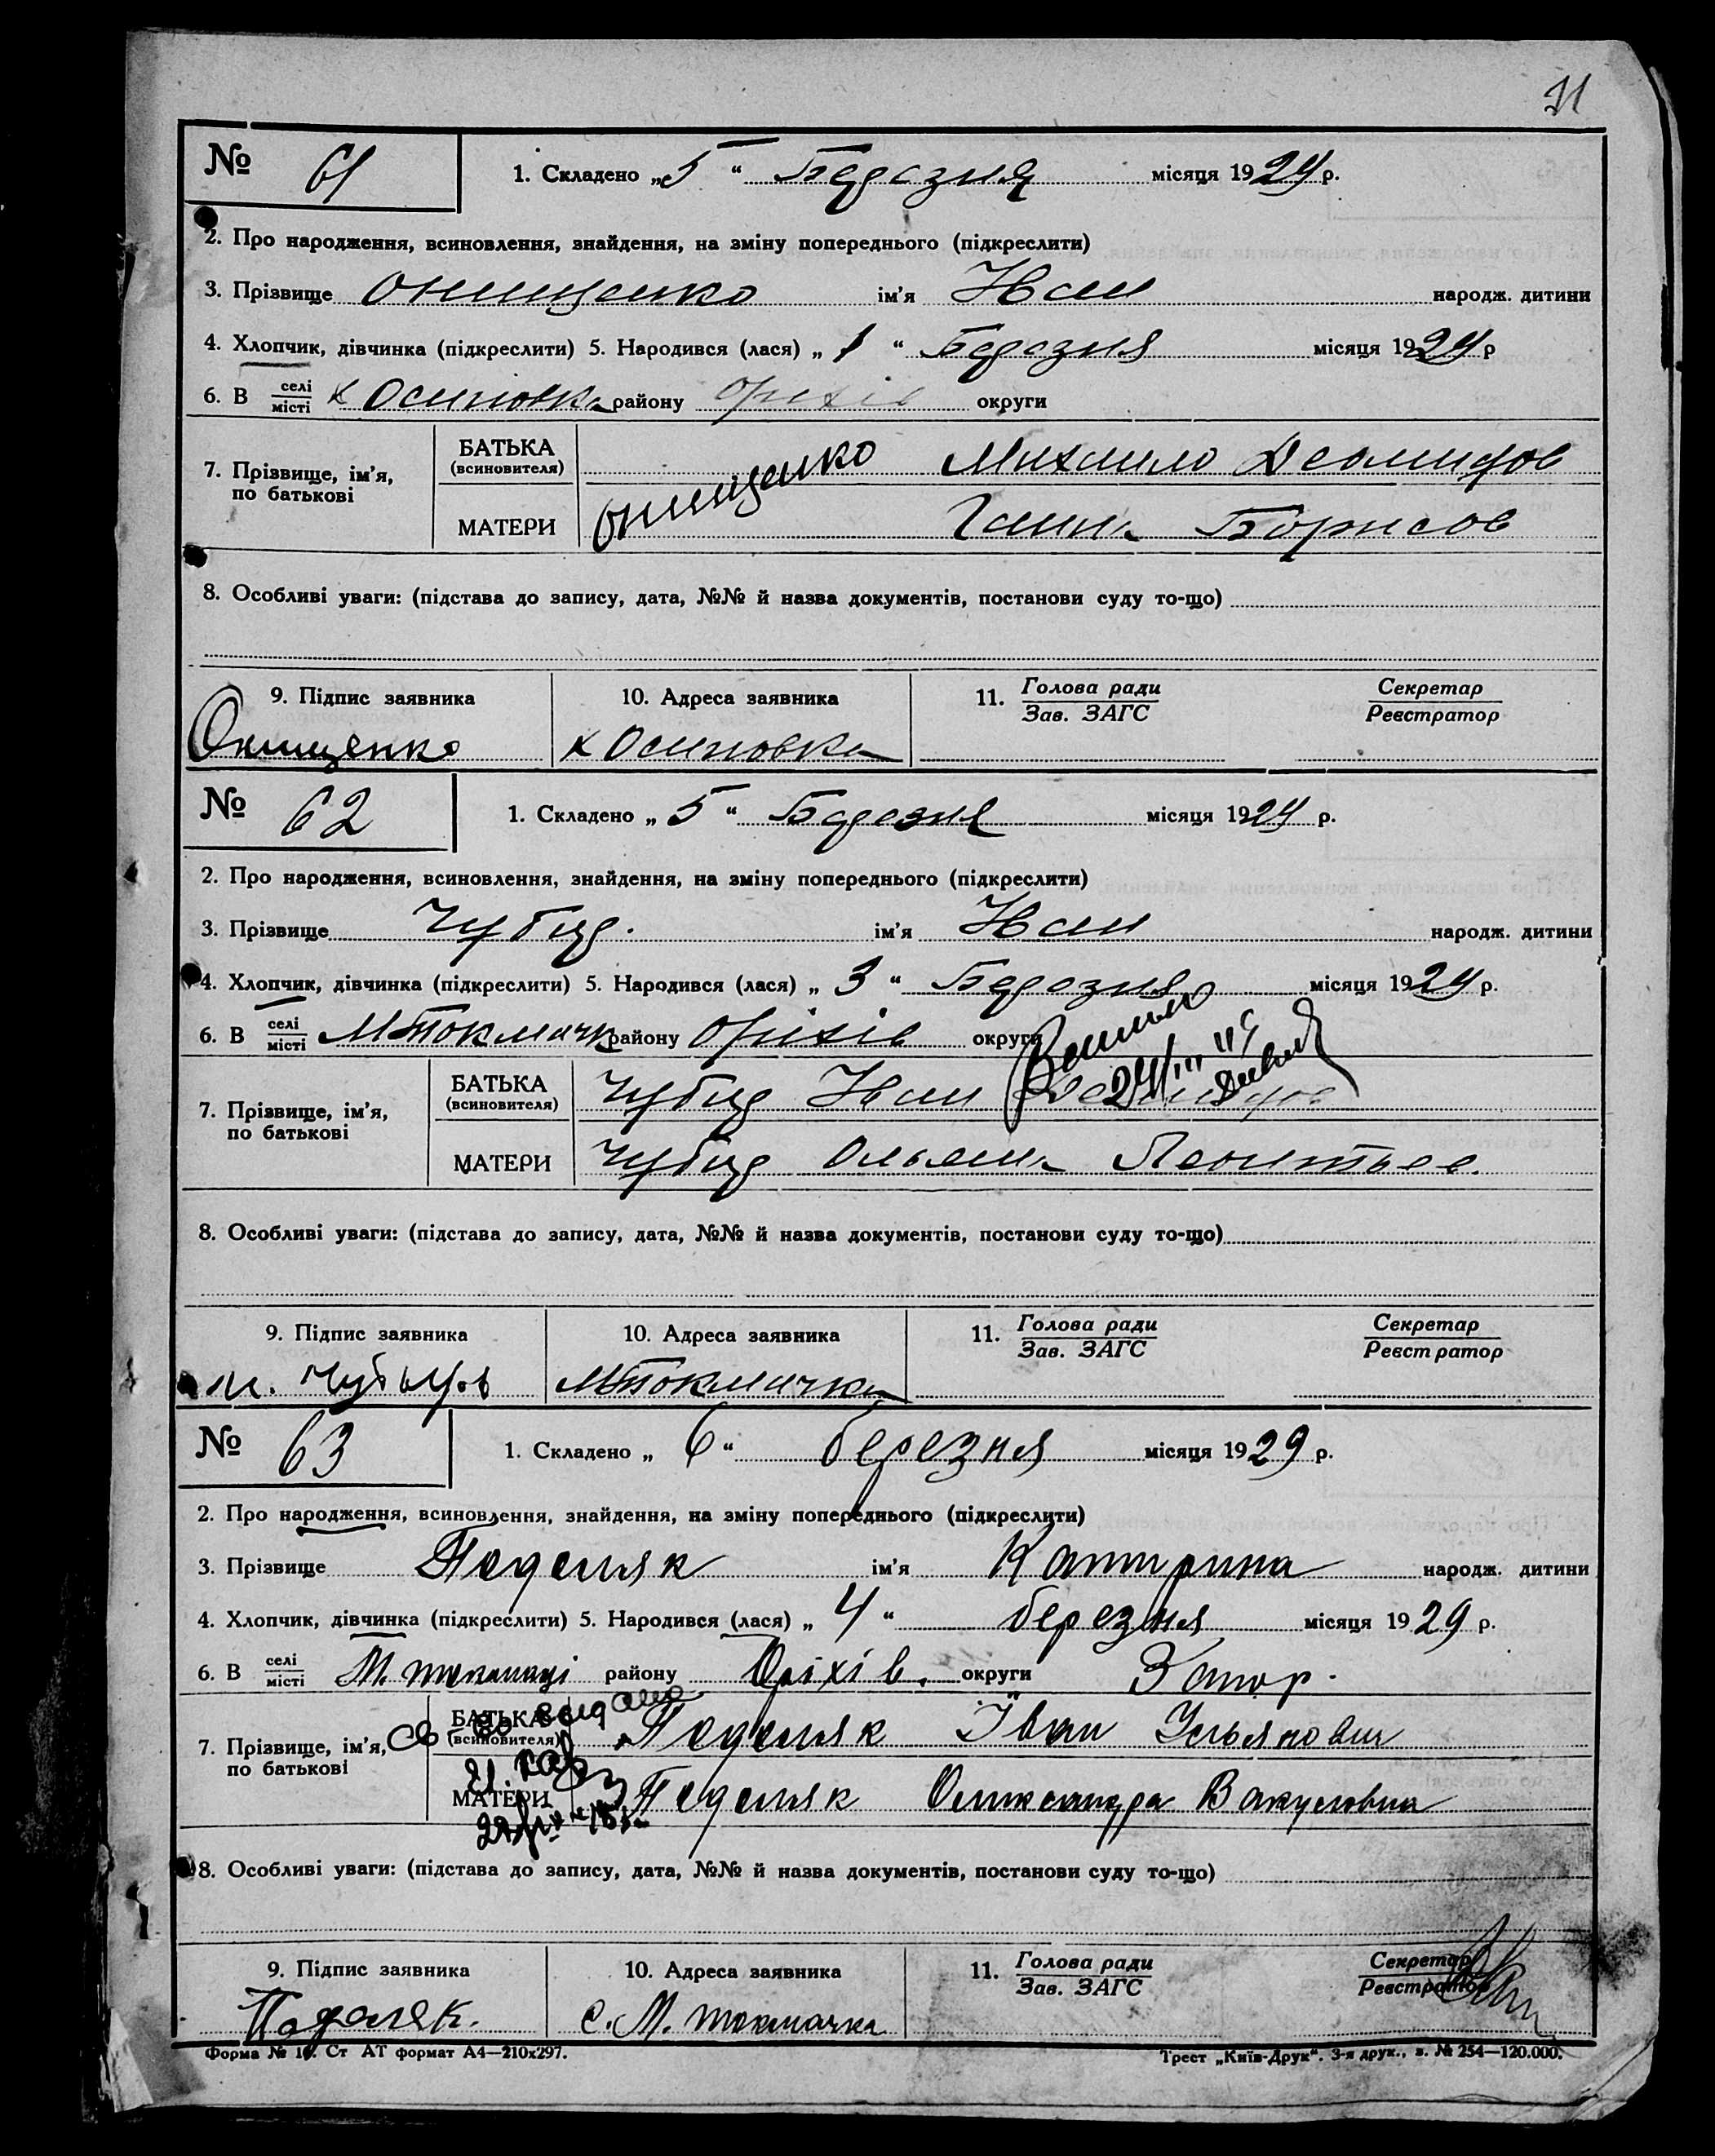 31
№ 61
1. Складено „5“ Березня місяця 1929 р.
2. Про народження, всиновлення, знайдення, на зміну попереднього (підкреслити)
3. Прізвище Онищенко ім'я Иван народж. дитини
4. Хлопчик, дівчинка (підкреслити) 5. Народився (лася) „1“ Березня місяця 1929 р
6. В селі/місті х Осиповка району Оріхів округи
7. Прізвище, ім'я, по батькові
БАТЬКА (всиновителя) Онищенко Михайло Деомидов
МАТЕРИ Ганна Борисов
8. Особливі уваги: (підстава до запису, дата, №№ й назва документів, постанови суду то-що)
9. Підпис заявника 10. Адреса заявника 11. Голова ради/Зав. ЗАГС Секретар/Реєстратор
Онищенко х Осиповка
№ 62
1. Складено „5“ Березня місяця 1929 р.
2. Про народження, всиновлення, знайдення, на зміну попереднього (підкреслити)
3. Прізвище Чубир ім'я Иван народж. дитини
4. Хлопчик, дівчинка (підкреслити) 5. Народився (лася) „3“ Березня місяця 1929 р.
6. В селі/місті М Токмачка району Оріхів округи
7. Прізвище, ім'я, по батькові
БАТЬКА (всиновителя) Чубир Иван
МАТЕРИ Чубир Ольяна Леонтьев.
8. Особливі уваги: (підстава до запису, дата, №№ й назва документів, постанови суду то-що)
9. Підпис заявника 10. Адреса заявника 11. Голова ради/Зав. ЗАГС Секретар/Реєстратор
М Токмачка
№ 63
1. Складено „6“ березня місяця 1929 р.
2. Про народження, всиновлення, знайдення, на зміну попереднього (підкреслити)
3. Прізвище Подоляк ім'я Катирина народж. дитини
4. Хлопчик, дівчинка (підкреслити) 5. Народився (лася) „4“ березня місяця 1929 р.
6. В селі/місті М. токмачці району Оріхів. округи Запор.
7. Прізвище, ім'я, по батькові
БАТЬКА (всиновителя) Подоляк Іван Ульянович
МАТЕРИ Подоляк Олександра Вакуловна
8. Особливі уваги: (підстава до запису, дата, №№ й назва документів, постанови суду то-що)
9. Підпис заявника 10. Адреса заявника 11. Голова ради/Зав. ЗАГС Секретар/Реєстратор
Подоляк. с. М. токмачка
Форма № 10. Ст АТ формат А4—210х297. Трест „Київ-Друк“. 3-я друк., з. № 254—120.000.